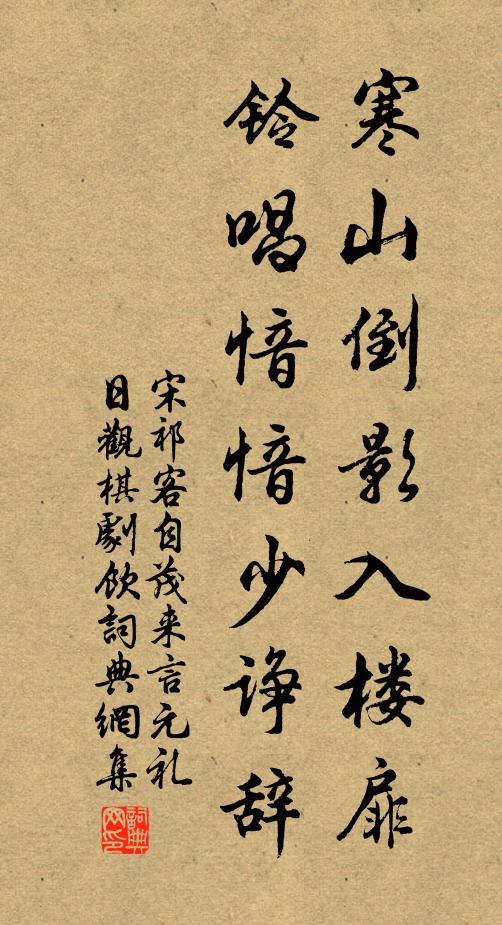 寒山倒影入楼扉
铃唱愔愔少诤辞
宋祁客自茂来言元礼
日觀棋劇飲詞典網集
詞典网印